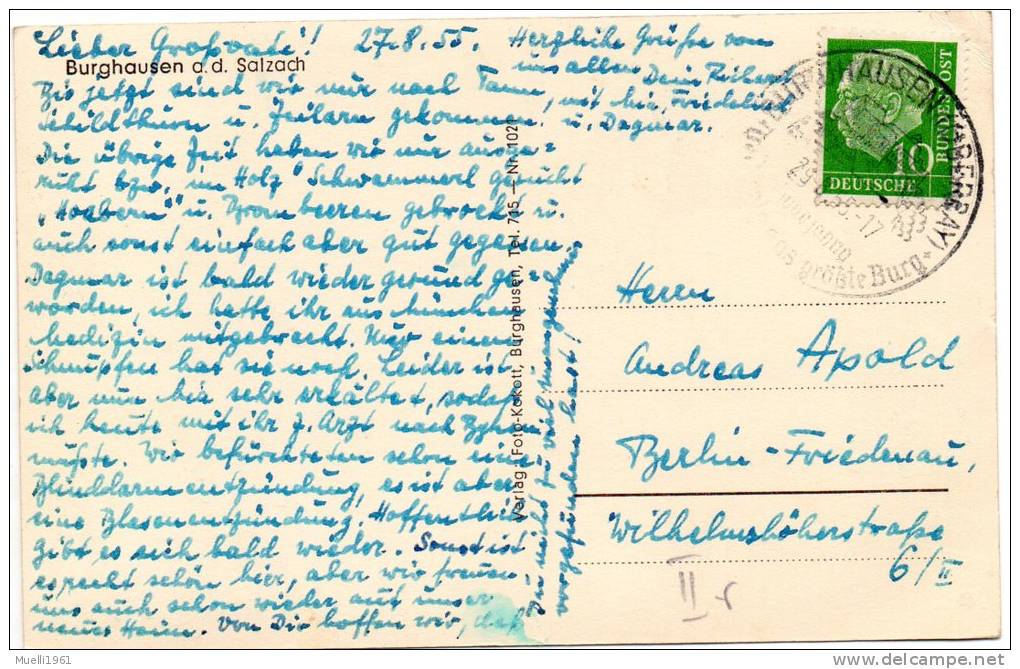 Lieber Großvater! 27.8.55.
Burghausen a. d. Salzach
Bis jetzt sind wir nur nach Tann,
Schildthurn u. Zeilarn gekommen.
Die übrige Zeit haben wir nur ausge=
ruht bzw. im "Holz" Schwammerl gesucht
"Hoabern" u. Brombeeren gebrockt u.
auch sonst einfach aber gut gegessen.
Dagmar ist bald wieder gesund ge=
worden, ich hatte ihr aus München
Medizin mitgebracht. Nur einen
Schnupfen hat sie noch. Leider ist
aber nun sehr erkältet, sodaß
ich heute mit ihr z. Arzt nach
mußte. Wir befürchteten schon eine
Blinddarmentzündung, es ist aber
eine Blasenentzündung. Hoffentlich
gibt es sich bald wieder. Sonst ist
es recht schön hier, aber wir freuen
uns auch schon wieder auf unser
neues Heim. Von Dir hoffen wir, daß
Du nicht zu viel Unangenehmes
vorgefunden hast!
Herzliche Grüße von
uns allen Dein Richard
mit
u. Dagmar.
Verlag: Foto-Kokott, Burghausen, Tel. 715 — Nr. 1021
BURGHAUSEN (OBERBAY)
-17
größte Burg
10
DEUTSCHE
BUNDESPOST
Herrn
Andreas Apold
Berlin-Friedenau,
Wilhelmshöherstraße
6/II
II
Muelli1961